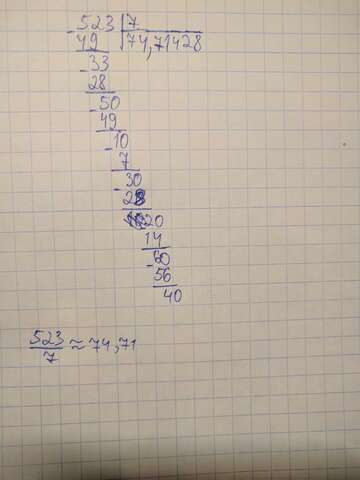 - 523 | 7
49 74,71428
- 33
28
- 50
49
- 10
7
- 30
28
20
14
- 60
56
40
523/7 ≈ 74,71